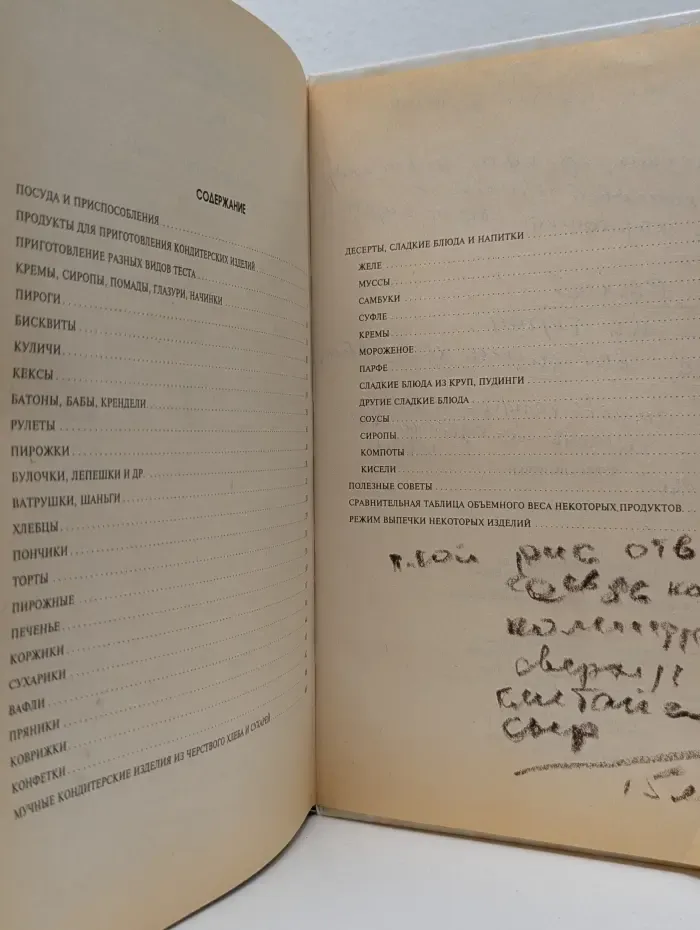 СОДЕРЖАНИЕ
ПОСУДА И ПРИСПОСОБЛЕНИЯ
ПРОДУКТЫ ДЛЯ ПРИГОТОВЛЕНИЯ КОНДИТЕРСКИХ ИЗДЕЛИЙ
ПРИГОТОВЛЕНИЕ РАЗНЫХ ВИДОВ ТЕСТА
КРЕМЫ, СИРОПЫ, ПОМАДЫ, ГЛАЗУРИ, НАЧИНКИ
ПИРОГИ
БИСКВИТЫ
КУЛИЧИ
КЕКСЫ
БАТОНЫ, БАБЫ, КРЕНДЕЛИ
РУЛЕТЫ
ПИРОЖКИ
БУЛОЧКИ, ЛЕПЕШКИ И ДР.
ВАТРУШКИ, ШАНЬГИ
ХЛЕБЦЫ
ПОНЧИКИ
ТОРТЫ
ПИРОЖНЫЕ
ПЕЧЕНЬЕ
КОРЖИКИ
СУХАРИКИ
ВАФЛИ
ПРЯНИКИ
КОВРИЖКИ
КОНФЕТКИ
МУЧНЫЕ КОНДИТЕРСКИЕ ИЗДЕЛИЯ ИЗ ЧЕРСТВОГО ХЛЕБА И СУХАРЕЙ
ДЕСЕРТЫ, СЛАДКИЕ БЛЮДА И НАПИТКИ
ЖЕЛЕ
МУССЫ
САМБУКИ
СУФЛЕ
КРЕМЫ
МОРОЖЕНОЕ
ПАРФЕ
СЛАДКИЕ БЛЮДА ИЗ КРУП, ПУДИНГИ
ДРУГИЕ СЛАДКИЕ БЛЮДА
СОУСЫ
СИРОПЫ
КОМПОТЫ
КИСЕЛИ
ПОЛЕЗНЫЕ СОВЕТЫ
СРАВНИТЕЛЬНАЯ ТАБЛИЦА ОБЪЕМНОГО ВЕСА НЕКОТОРЫХ ПРОДУКТОВ
РЕЖИМ ВЫПЕЧКИ НЕКОТОРЫХ ИЗДЕЛИЙ
рис отв
сверху
сыр
15